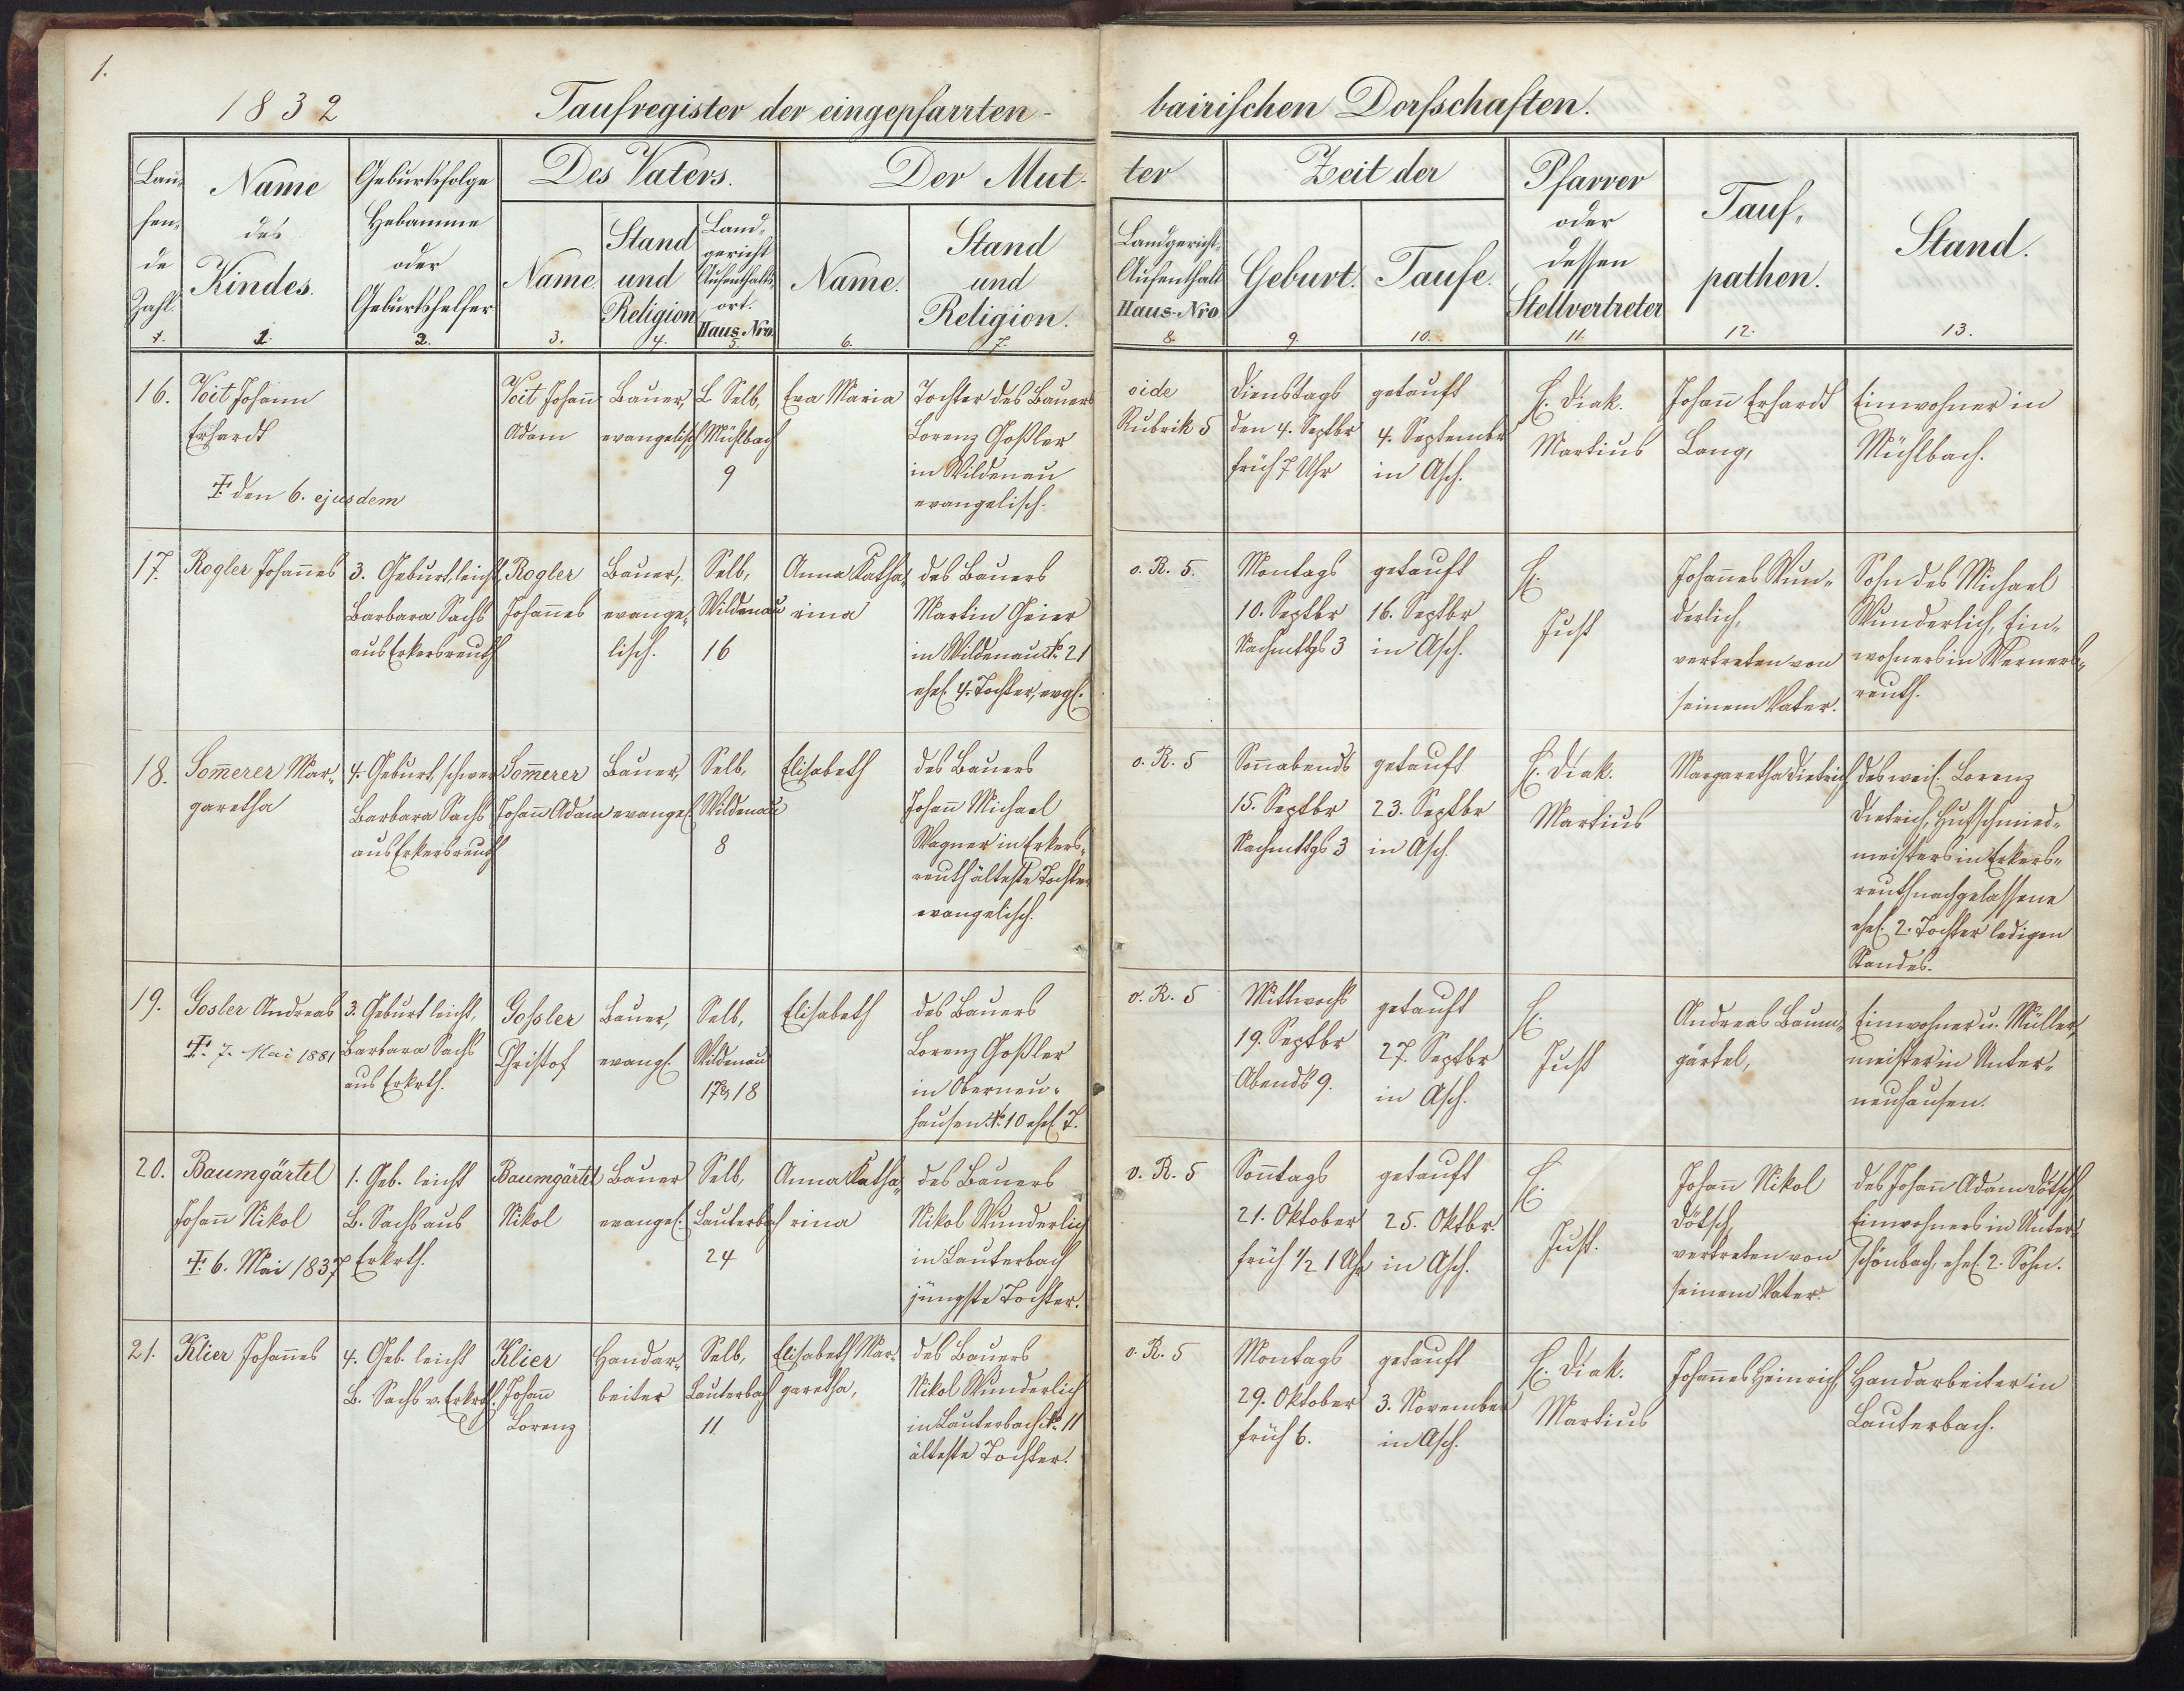 1.
1832
Taufregister der eingepfarrten-
bairischen Dorfschaften.
Lau-
fen-
de
Zahl.
1.
Name
des
Kindes.
2.
Geburtsfolge
Hebamme
oder
Geburtshelfer
3.
Des Vaters.
Name
3.
Stand
und
Religion
4.
Land-
gericht
Aufenthalts-
ort.
Haus-Nro.
5.
Der Mut-
ter
Name.
6.
Stand
und
Religion.
7.
Landgericht,
Aufenthalt
Haus-Nro.
8.
Zeit der
Geburt.
9.
Taufe.
10.
Pfarrer
oder
dessen
Stellvertreter
11.
Tauf-
pathen.
12.
Stand.
13.
16.
Voit Johann
Erhardt
‡ den 6. ejusdem
Voit Johañ
Adam
Bauer,
evangelisch
L. Selb,
Mühlbach
9
Eva Maria
Tochter des Bauers
Lorenz Goßler
in Wildenau
evangelisch.
vide
Rubrik 5
Dienstags
den 4. Septbr
früh 7 Uhr
getauft
4. Septembr
in Asch.
H. Diak.
Martius
Johañ Erhardt
Lang,
Einwohner in
Mühlbach.
17.
Rogler Johañes
3. Geburt, leicht,
Barbara Sachs
aus Erkersreuth
Rogler
Johañes
Bauer,
evange-
lisch.
Selb,
Wildenau
16
Anna Katha-
rina
des Bauers
Martin Geier
in Wildenau No. 21
ehel. 4. Tochter, evgl.
v. R. 5.
Montags
10. Septbr
Nachmttgs 3
getauft
16. Septbr
in Asch.
H.
Just
Johañes Wun-
derlich,
vertreten von
seinem Vater.
Sohn des Michael
Wunderlich, Ein-
wohners in Werners-
reuth.
18.
Som̃erer Mar-
garetha
4. Geburt, schwer
Barbara Sachs
aus Erkersreuth
Som̃erer
Johañ Adam
Bauer,
evangel.
Selb,
Wildenau
8
Elisabeth
des Bauers
Johañ Michael
Wagner in Erkers-
reuth älteste Tochter
evangelisch.
v. R. 5
Soñabends
15. Septbr
Nachmttgs 3
getauft
23. Septbr
in Asch.
H. Diak.
Martius
Margaretha Dietrich
des weil. Lorenz
Dietrich, Hufschmied-
meisters in Erkers-
reuth nachgelassene
ehel. 2. Tochter ledigen
Standes.
19.
Gosler Andreas
‡. 7. Mai 1881
3. Geburt leicht,
Barbara Sachs
aus Erkrth.
Goßler
Christof
Bauer,
evangl.
Selb,
Wildenau
17 & 18
Elisabeth
des Bauers
Lorenz Goßler
in Oberneu-
hausen No. 10 ehel. T.
v. R. 5
Mittwochs
19. Septbr
Abends 9.
getauft
27. Septbr
in Asch.
H.
Just
Andreas Baum-
gärtel,
Einwohner u. Müller-
meister in Unter-
neuhausen.
20.
Baumgärtel
Johañ Nikol
‡. 6. Mai 1837
1. Geb. leicht
B. Sachs aus
Erkrth.
Baumgärtel
Nikol
Bauer
evangel.
Selb,
Lauterbach
24
Anna Katha-
rina
des Bauers
Nikol Wunderlich
in Lauterbach
jüngste Tochter.
v. R. 5
Soñtags
21. Oktober
früh 1/2 1 Uhr
getauft
25. Oktbr.
in Asch.
H.
Just.
Johañ Nikol
Dötsch,
vertreten von
seinem Vater.
des Johañ Adam Dötsch,
Einwohners in Unter-
schönbach, ehel. 2. Sohn.
21.
Klier Johañes
4. Geb. leicht
B. Sachs v. Erkrth.
Klier
Johañ
Lorenz
Handar-
beiter
Selb,
Lauterbach
11
Elisabeth Mar-
garetha,
des Bauers
Nikol Wunderlich
in Lauterbach No. 11
älteste Tochter.
v. R. 5
Montags
29. Oktober
früh 6.
getauft
3. November
in Asch.
H. Diak.
Martius
Johañes Heinrich,
Handarbeiter in
Lauterbach.